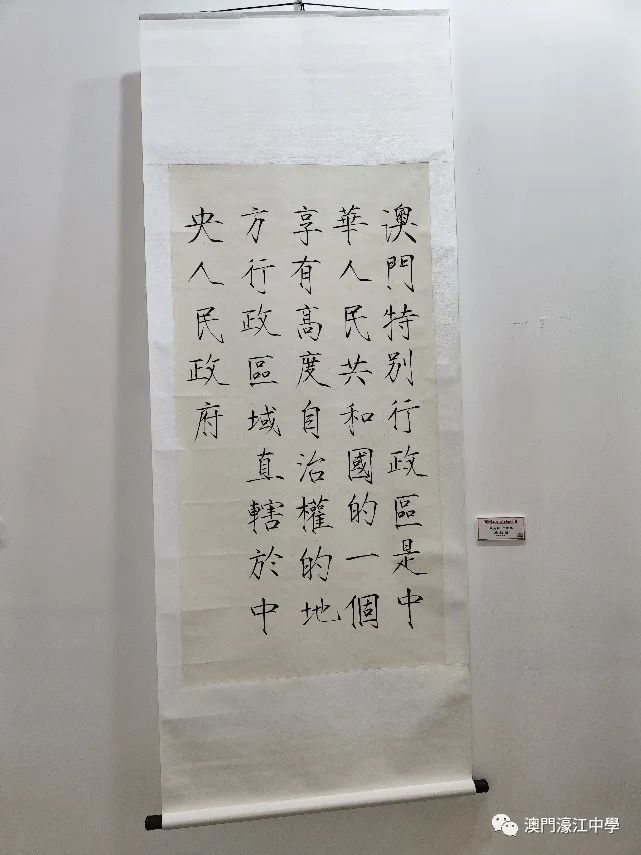 澳門特別行政區是中
華人民共和國的一個
享有高度自治權的地
方行政區域直轄於中
央人民政府
澳門濠江中學